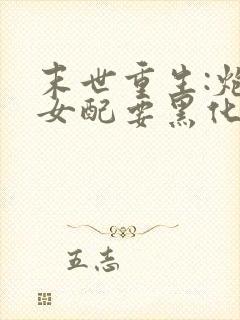 末世重生:炮
女配要黑化
五志